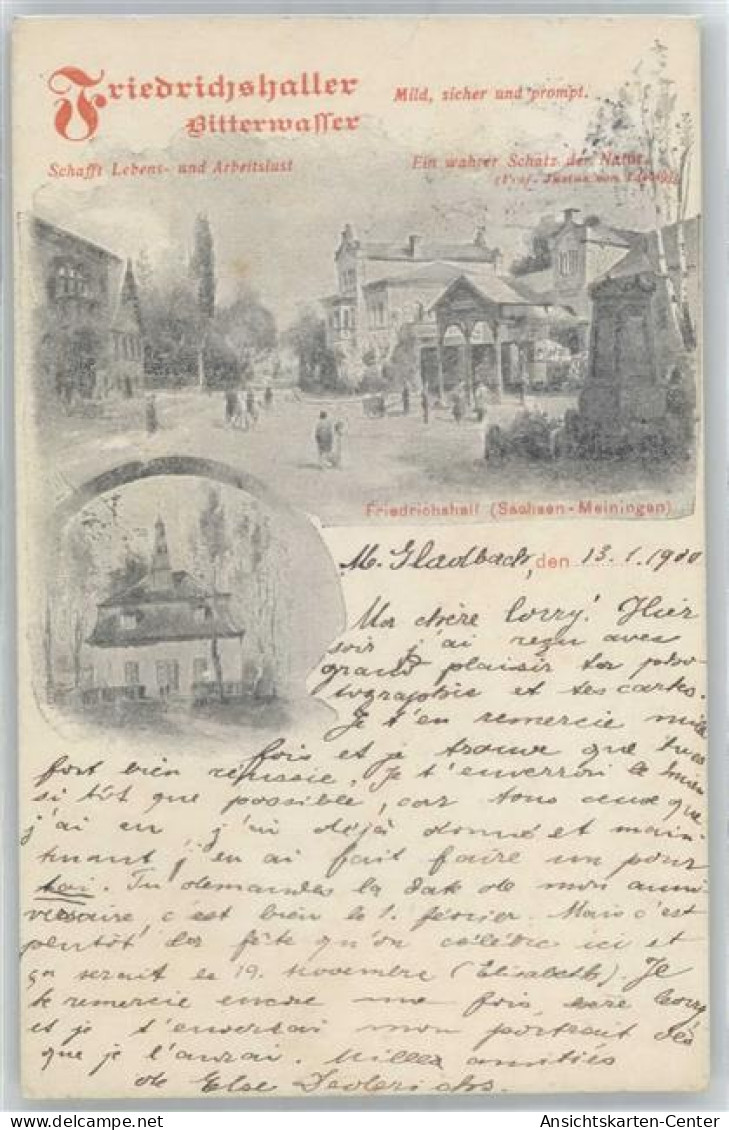 Friedrichshaller
Bitterwasser
Mild, sicher und prompt.
Schafft Lebens- und Arbeitslust
Ein wahrer Schatz der Natur.
(Prof. Justus von Liebig)
Friedrichshall (Sachsen-Meiningen)
M. Gladbach, den 13.1.1900
Ma chère Lorry! Hier
soir j'ai reçu avec
grand plaisir ta pho-
tographie et tes cartes.
Je t'en remercie mille
fois et je trouve que tu es
fort bien réussie. Je t'enverrai le mien
si tôt que possible, car tous ceux que
j'ai eu, j'ai déjà donné et main-
tenant j'en ai fait faire un pour
toi. Tu demandes la date de mon anni-
versaire, c'est bien le 1. février. Mais c'est
plentôt la fête qu'on célèbre ici et
ça serait le 19. novembre (Elisabeth). Je
te remercie encore une fois, chère Lorry
et je t'enverrai mon portrait dès
que je l'aurai. Milles amitiés
de Else
Ansichtskarten-Center